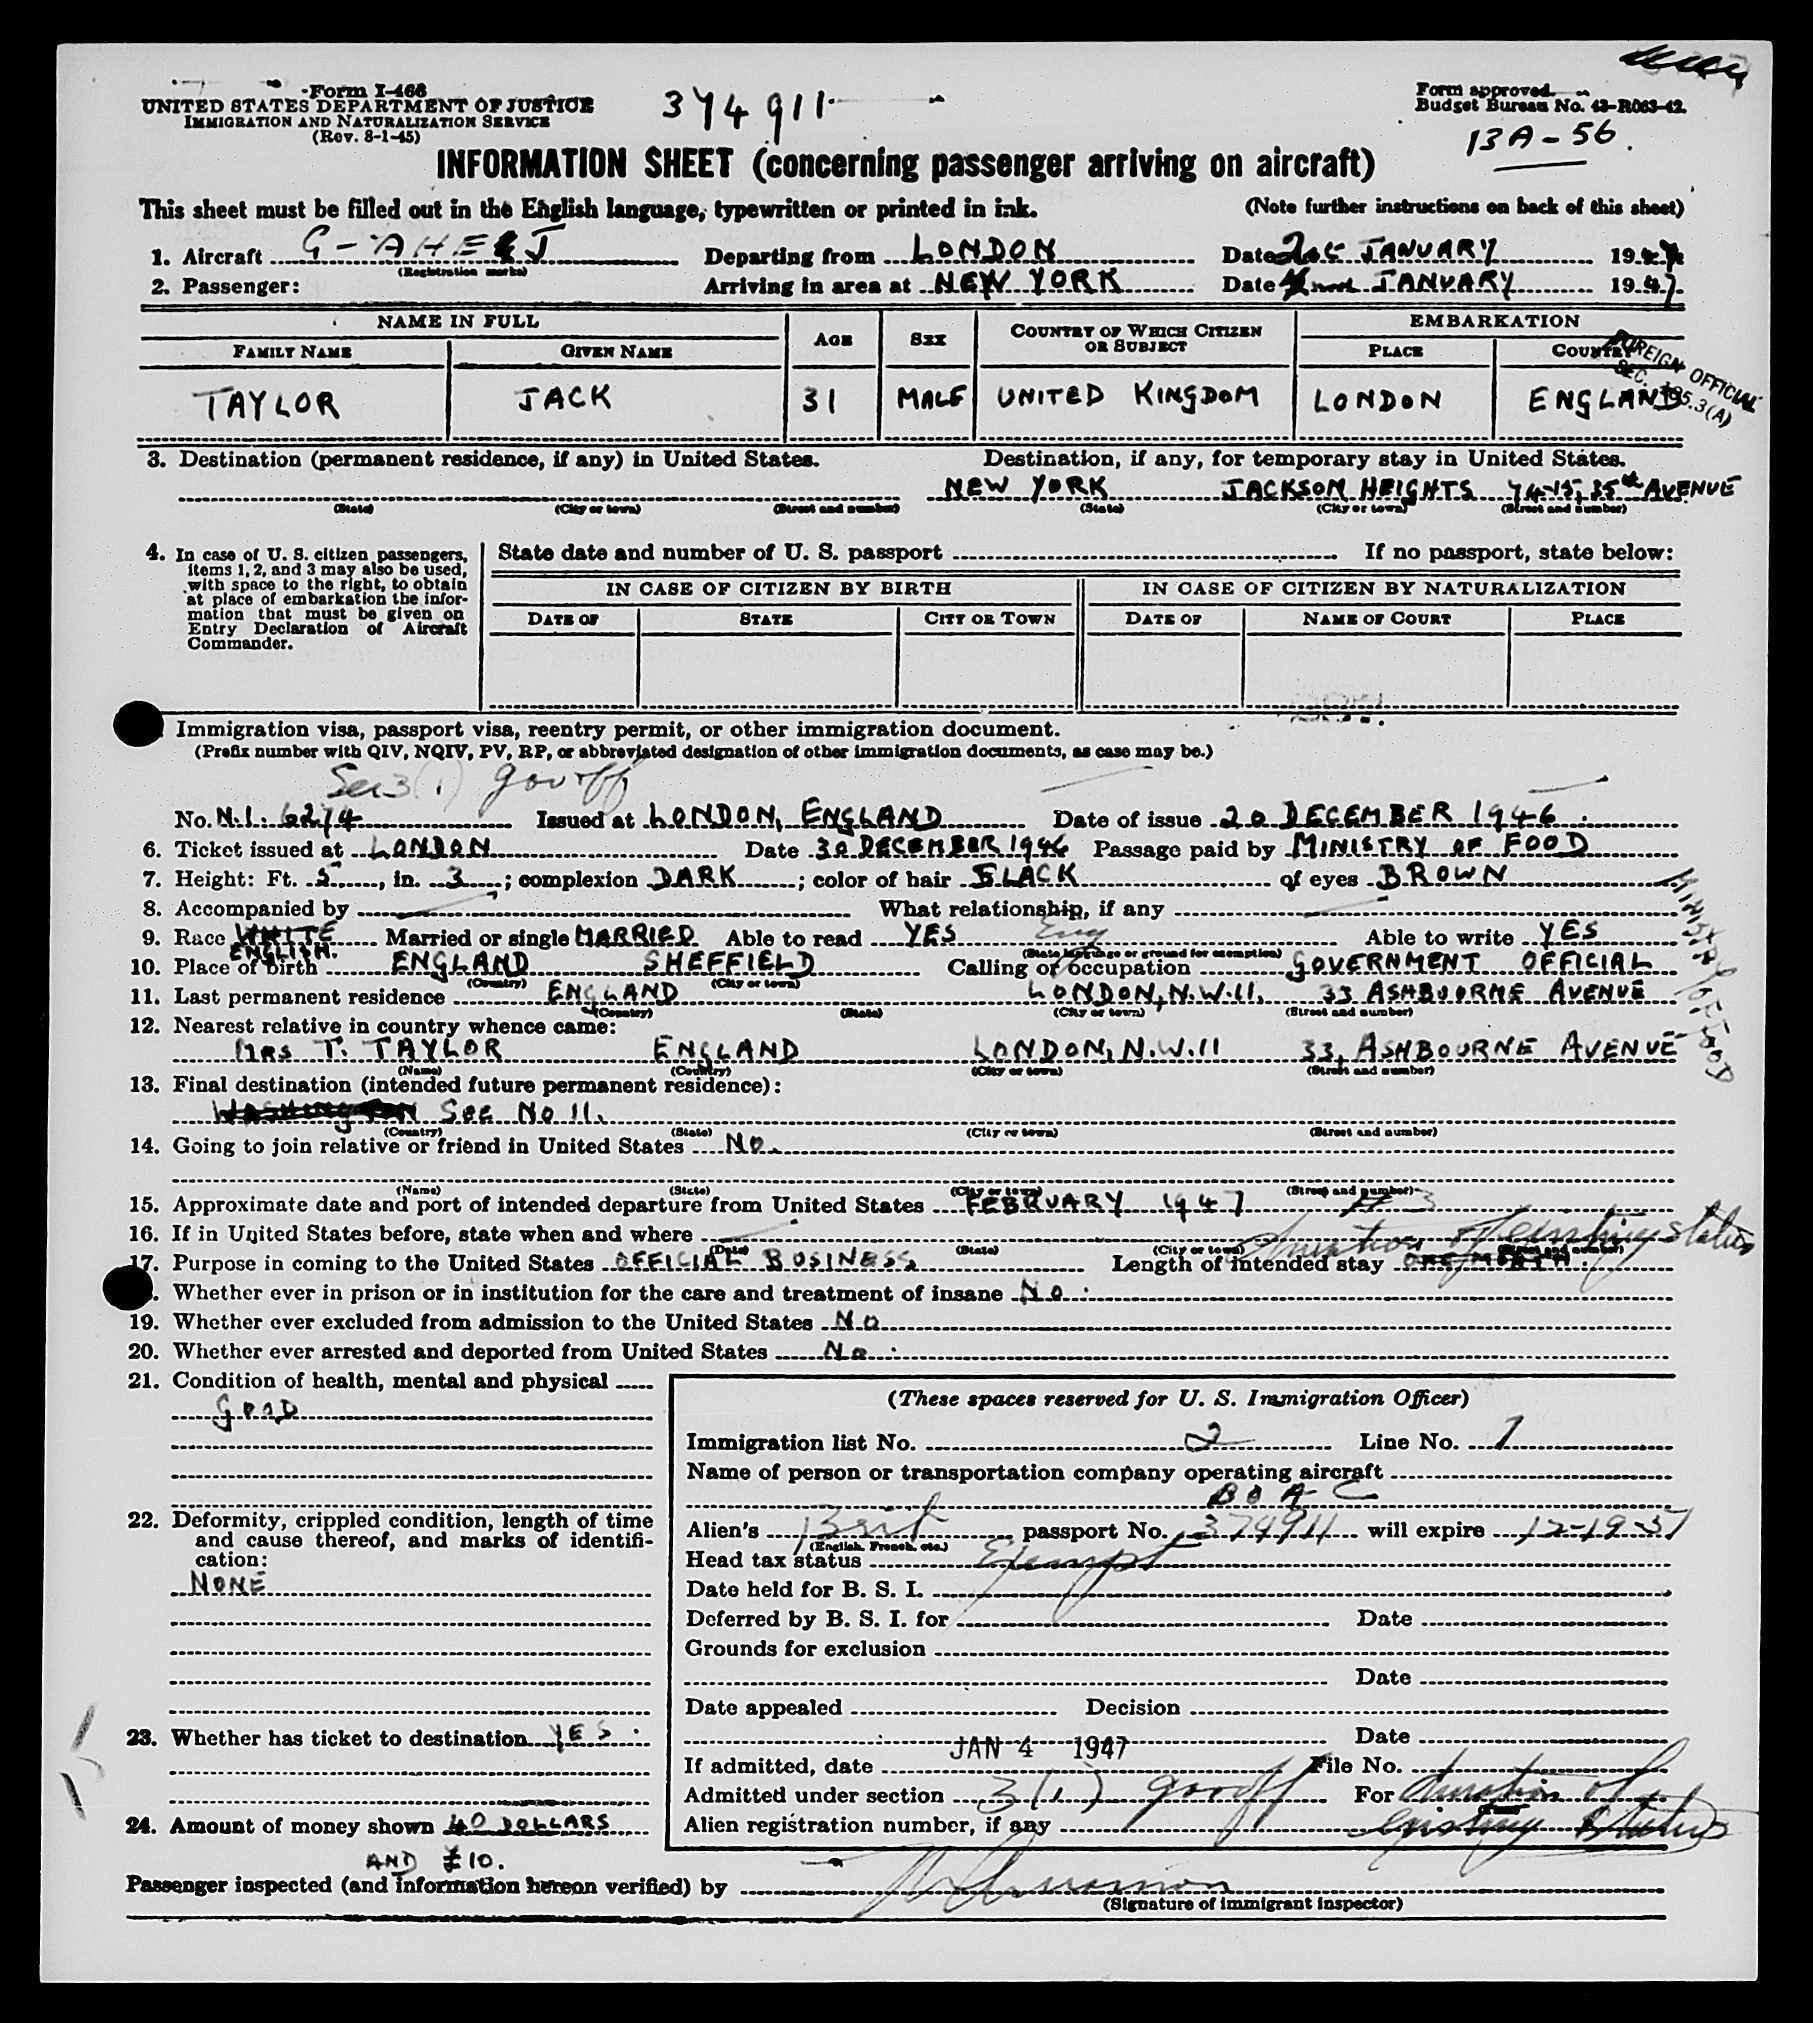 Form I-466
UNITED STATES DEPARTMENT OF JUSTICE
IMMIGRATION AND NATURALIZATION SERVICE
(Rev. 8-1-45)
374911
Form approved.
Budget Bureau No. 43-R063-42.
13A-56.
INFORMATION SHEET (concerning passenger arriving on aircraft)
This sheet must be filled out in the English language, typewritten or printed in ink. (Note further instructions on back of this sheet)
1. Aircraft G-AHEJ Departing from LONDON Date JANUARY 194
(Registration marks)
2. Passenger: Arriving in area at NEW YORK Date JANUARY 1947
NAME IN FULL AGE SEX COUNTRY OF WHICH CITIZEN OR SUBJECT EMBARKATION
FAMILY NAME GIVEN NAME PLACE COUNTRY
TAYLOR JACK 31 MALE UNITED KINGDOM LONDON ENGLAND
FOREIGN OFFICIAL
SEC. 195.3(A)
3. Destination (permanent residence, if any) in United States. Destination, if any, for temporary stay in United States.
NEW YORK JACKSON HEIGHTS 74-15, 35th AVENUE
(State) (City or town) (Street and number) (State) (City or town) (Street and number)
4. In case of U. S. citizen passengers, items 1, 2, and 3 may also be used, with space to the right, to obtain at place of embarkation the information that must be given on Entry Declaration of Aircraft Commander.
State date and number of U. S. passport If no passport, state below:
IN CASE OF CITIZEN BY BIRTH IN CASE OF CITIZEN BY NATURALIZATION
DATE OF STATE CITY OR TOWN DATE OF NAME OF COURT PLACE
Immigration visa, passport visa, reentry permit, or other immigration document.
(Prefix number with QIV, NQIV, PV, RP, or abbreviated designation of other immigration documents, as case may be.)
Sec 3(1) gov off
No. N.I. 6274 Issued at LONDON, ENGLAND Date of issue 20 DECEMBER 1946
6. Ticket issued at LONDON Date 30 DECEMBER 1946 Passage paid by MINISTRY OF FOOD
7. Height: Ft. 5, in. 3; complexion DARK; color of hair BLACK of eyes BROWN
8. Accompanied by What relationship, if any
MINISTRY OF FOOD
9. Race WHITE Married or single MARRIED Able to read YES Eng Able to write YES
ENGLISH. (State language or ground for exemption)
10. Place of birth ENGLAND SHEFFIELD Calling or occupation GOVERNMENT OFFICIAL
(Country) (City or town)
11. Last permanent residence ENGLAND LONDON, N.W.11. 33 ASHBOURNE AVENUE
(Country) (State) (City or town) (Street and number)
12. Nearest relative in country whence came:
MRS T. TAYLOR ENGLAND LONDON, N.W.11 33, ASHBOURNE AVENUE
(Name) (Country) (City or town) (Street and number)
13. Final destination (intended future permanent residence):
WASHINGTON See No 11.
(Country) (State) (City or town) (Street and number)
14. Going to join relative or friend in United States No.
(Name) (State) (City or town) (Street and number)
15. Approximate date and port of intended departure from United States FEBRUARY 1947
16. If in United States before, state when and where
(Date) (State) (City or town) (Street and number)
duration of existing status
17. Purpose in coming to the United States OFFICIAL BUSINESS Length of intended stay ONE MONTH
Whether ever in prison or in institution for the care and treatment of insane No
19. Whether ever excluded from admission to the United States No
20. Whether ever arrested and deported from United States No
21. Condition of health, mental and physical
GOOD
22. Deformity, crippled condition, length of time and cause thereof, and marks of identification:
NONE
23. Whether has ticket to destination YES
24. Amount of money shown 40 DOLLARS
AND £10.
(These spaces reserved for U. S. Immigration Officer)
Immigration list No. 2 Line No. 1
Name of person or transportation company operating aircraft
BOAC
Alien's Brit passport No. 374911 will expire 12-19-51
(English, French, etc.)
Head tax status Exempt
Date held for B. S. I.
Deferred by B. S. I. for Date
Grounds for exclusion
Date
Date appealed Decision
Date
If admitted, date JAN 4 1947 File No.
Admitted under section 3(1) gov off For duration of
Alien registration number, if any existing status
Passenger inspected (and information hereon verified) by
(Signature of immigrant inspector)